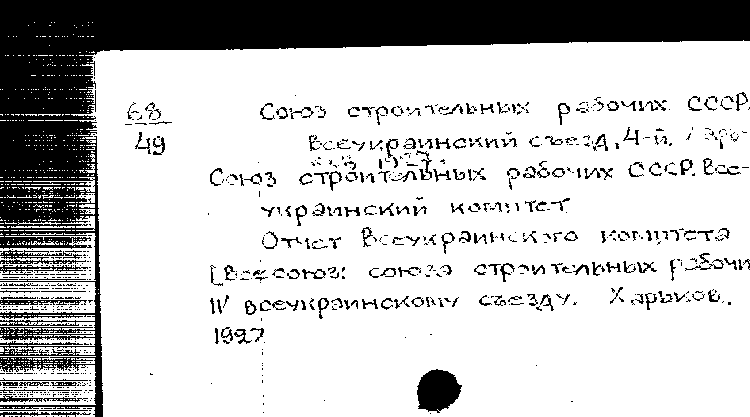 68
49
Союз строительных рабочих СССР.
Всеукраинский съезд, 4-й,
1927.
Союз строительных рабочих СССР. Все-
украинский комитет
Отчет Всеукраинского комитета
[Всесоюз: союза строительных рабочи
IV всеукраинскому съезду. Харьков.
1927